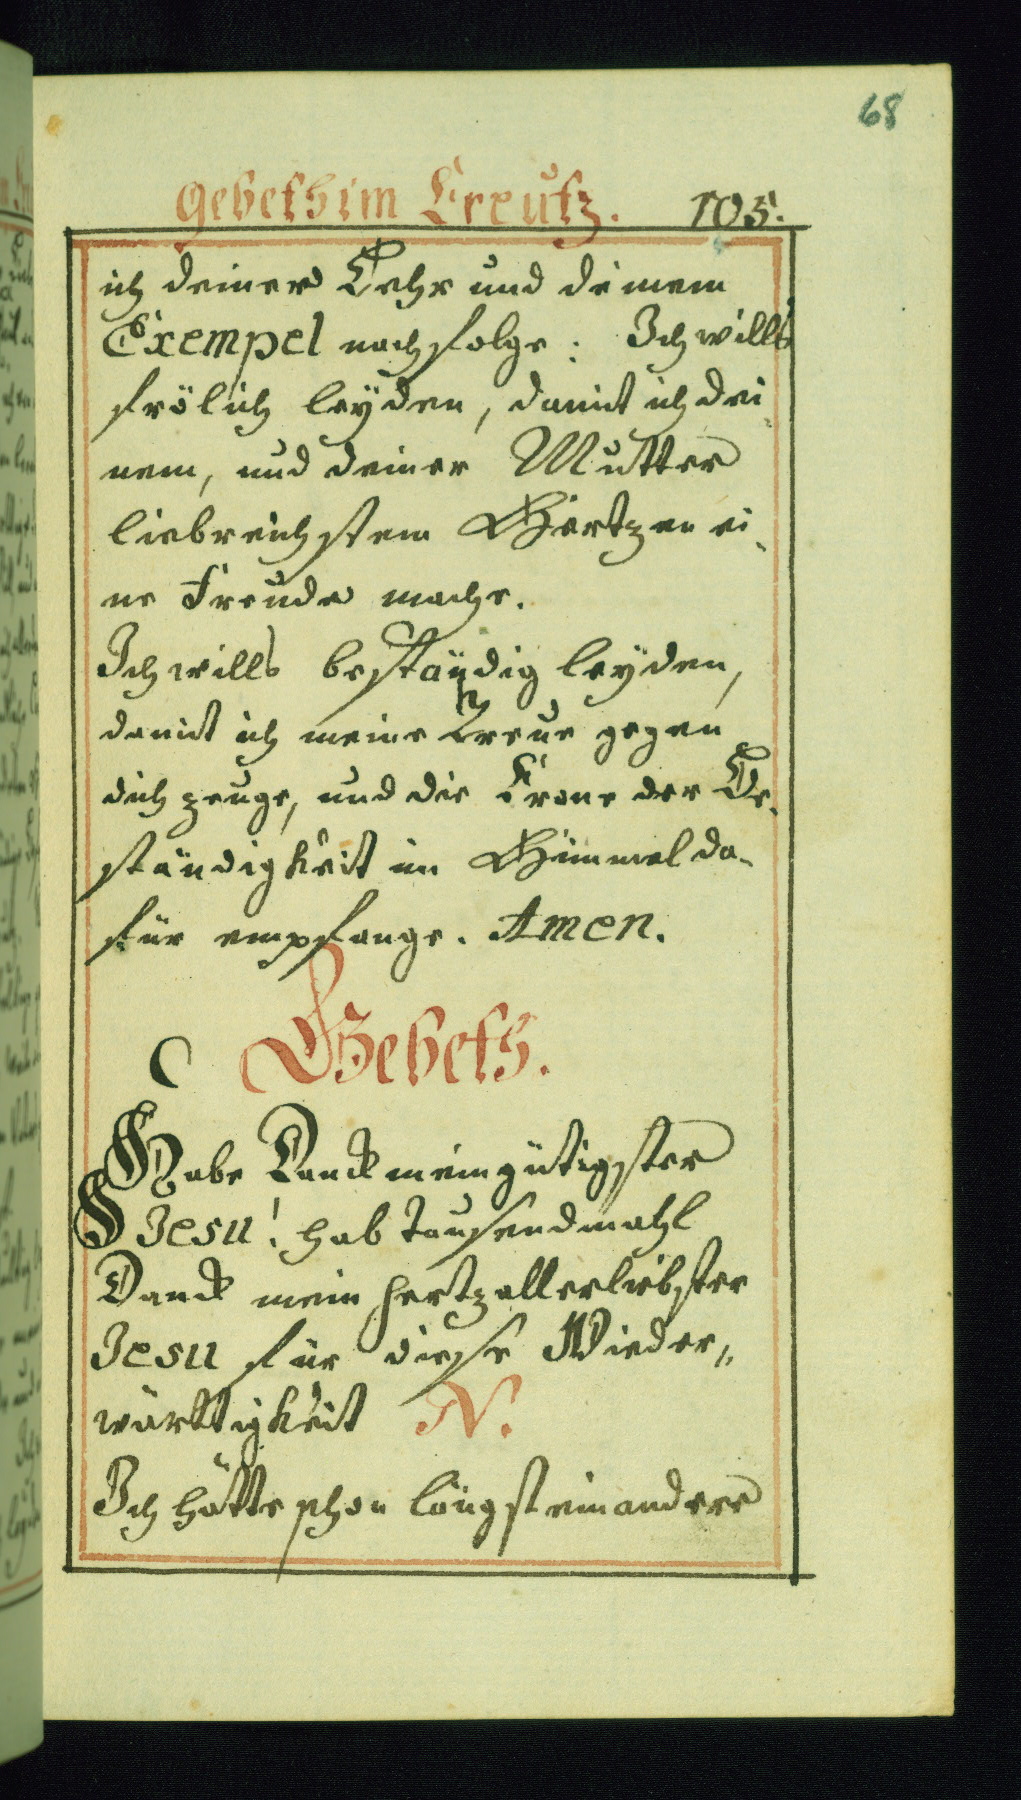 68
Gebeth im Creutz. 105.
ich deiner Lehr und deinem
Exempel nachfolge: Ich wills
frölich leyden, damit ich dei-
nem, und deiner Mutter
liebreichstem Hertzen ei-
ne Freude mache.
Ich wills beständig leyden,
damit ich meine Treue gegen
dich zeuge, und die Crone der Be-
ständigkeit im Himmel da-
für empfange. Amen.
Gebeth.
Habe Danck mein gütigster
Jesu! hab tausendmahl
Danck mein hertzallerliebster
Jesu für diese Wieder„
wärttigkeit N.
Ich hätte schon längst ein andere